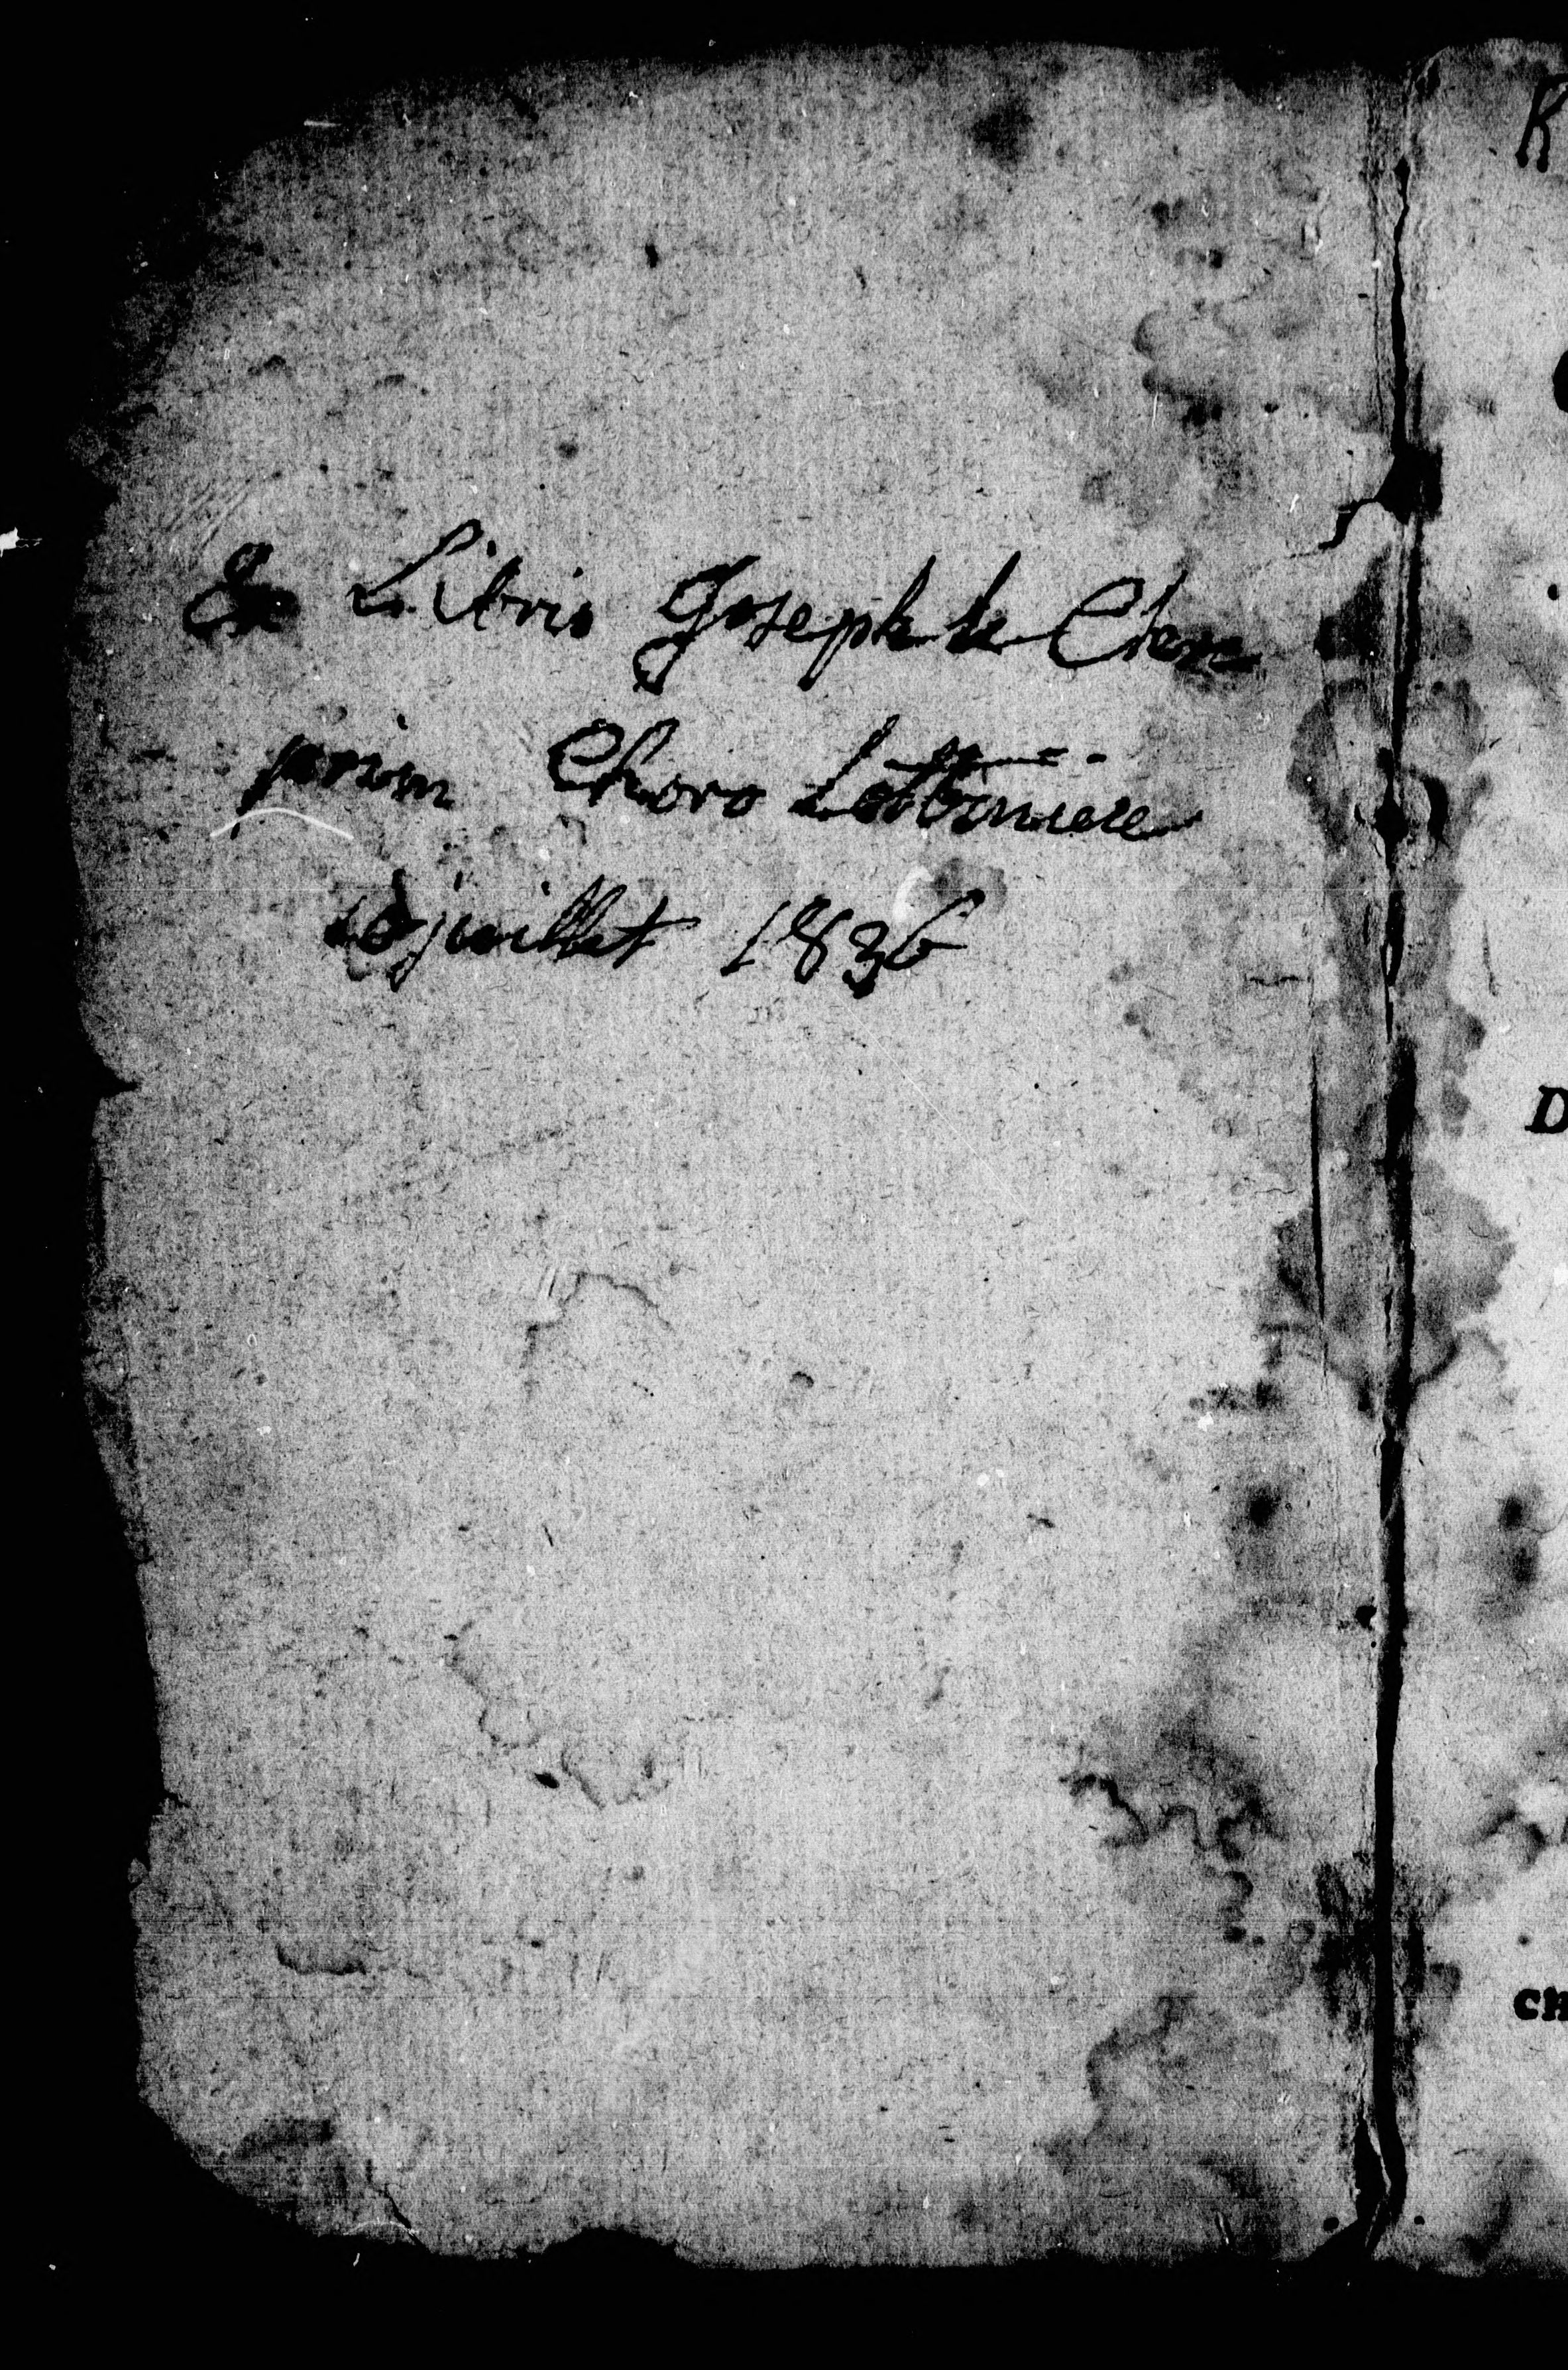 Ex Libris Joseph le Clerc
prim Choro Lotbiniere
juillet 1836
K
D
ch